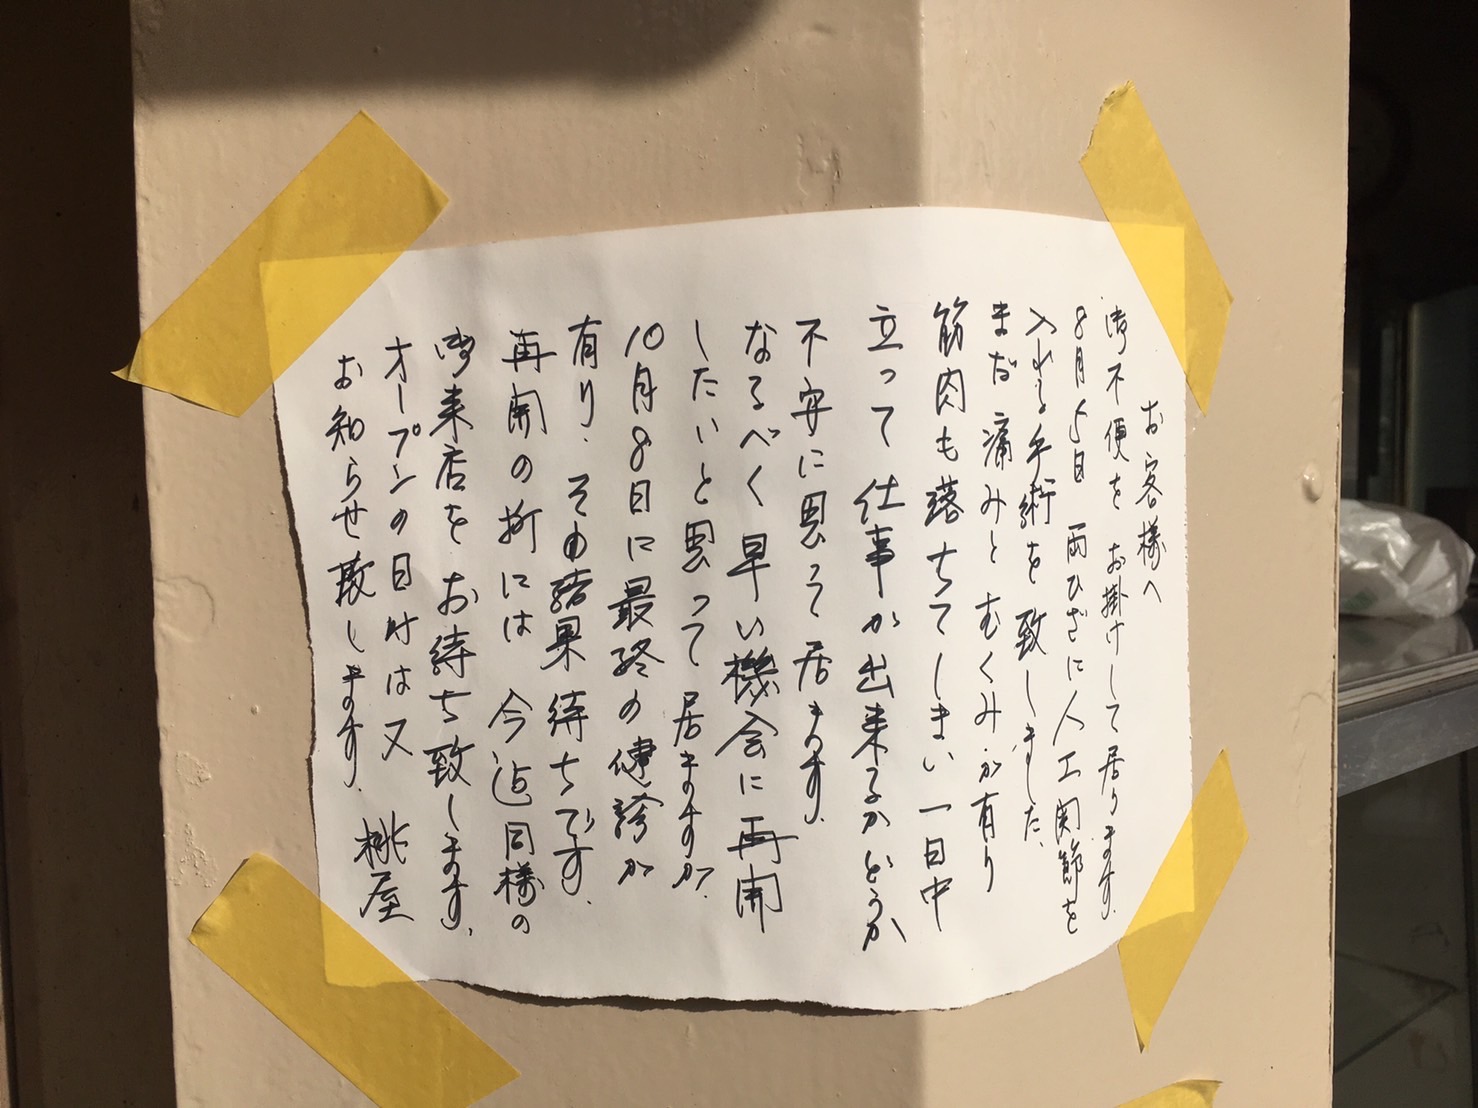 お客様へ
御不便を お掛けして居ります。
8月5日 両ひざに人工関節を
入れる手術を致しました。
まだ痛みと むくみが有り
筋肉も落ちてしまい 一日中
立って仕事が出来るかどうか
不安に思って居ます。
なるべく早い機会に再開
したいと思って 居ますが、
10月8日に最終の健診が
有り、その結果待ちです。
再開の折には 今迠同様の
御来店を お待ち致します。
オープンの日付は又
お知らせ致します。 桃屋